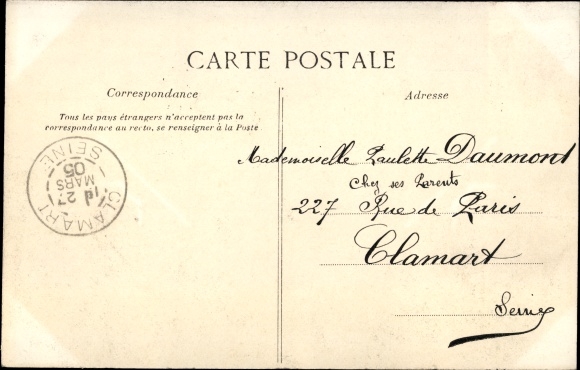 CARTE POSTALE
Correspondance
Tous les pays étrangers n'acceptent pas la
correspondance au recto, se renseigner à la Poste
CLAMART
27
MARS
05
SEINE
Adresse
Mademoiselle Paulette Daumont
Chez ses Parents
227 Rue de Paris
Clamart
Seine